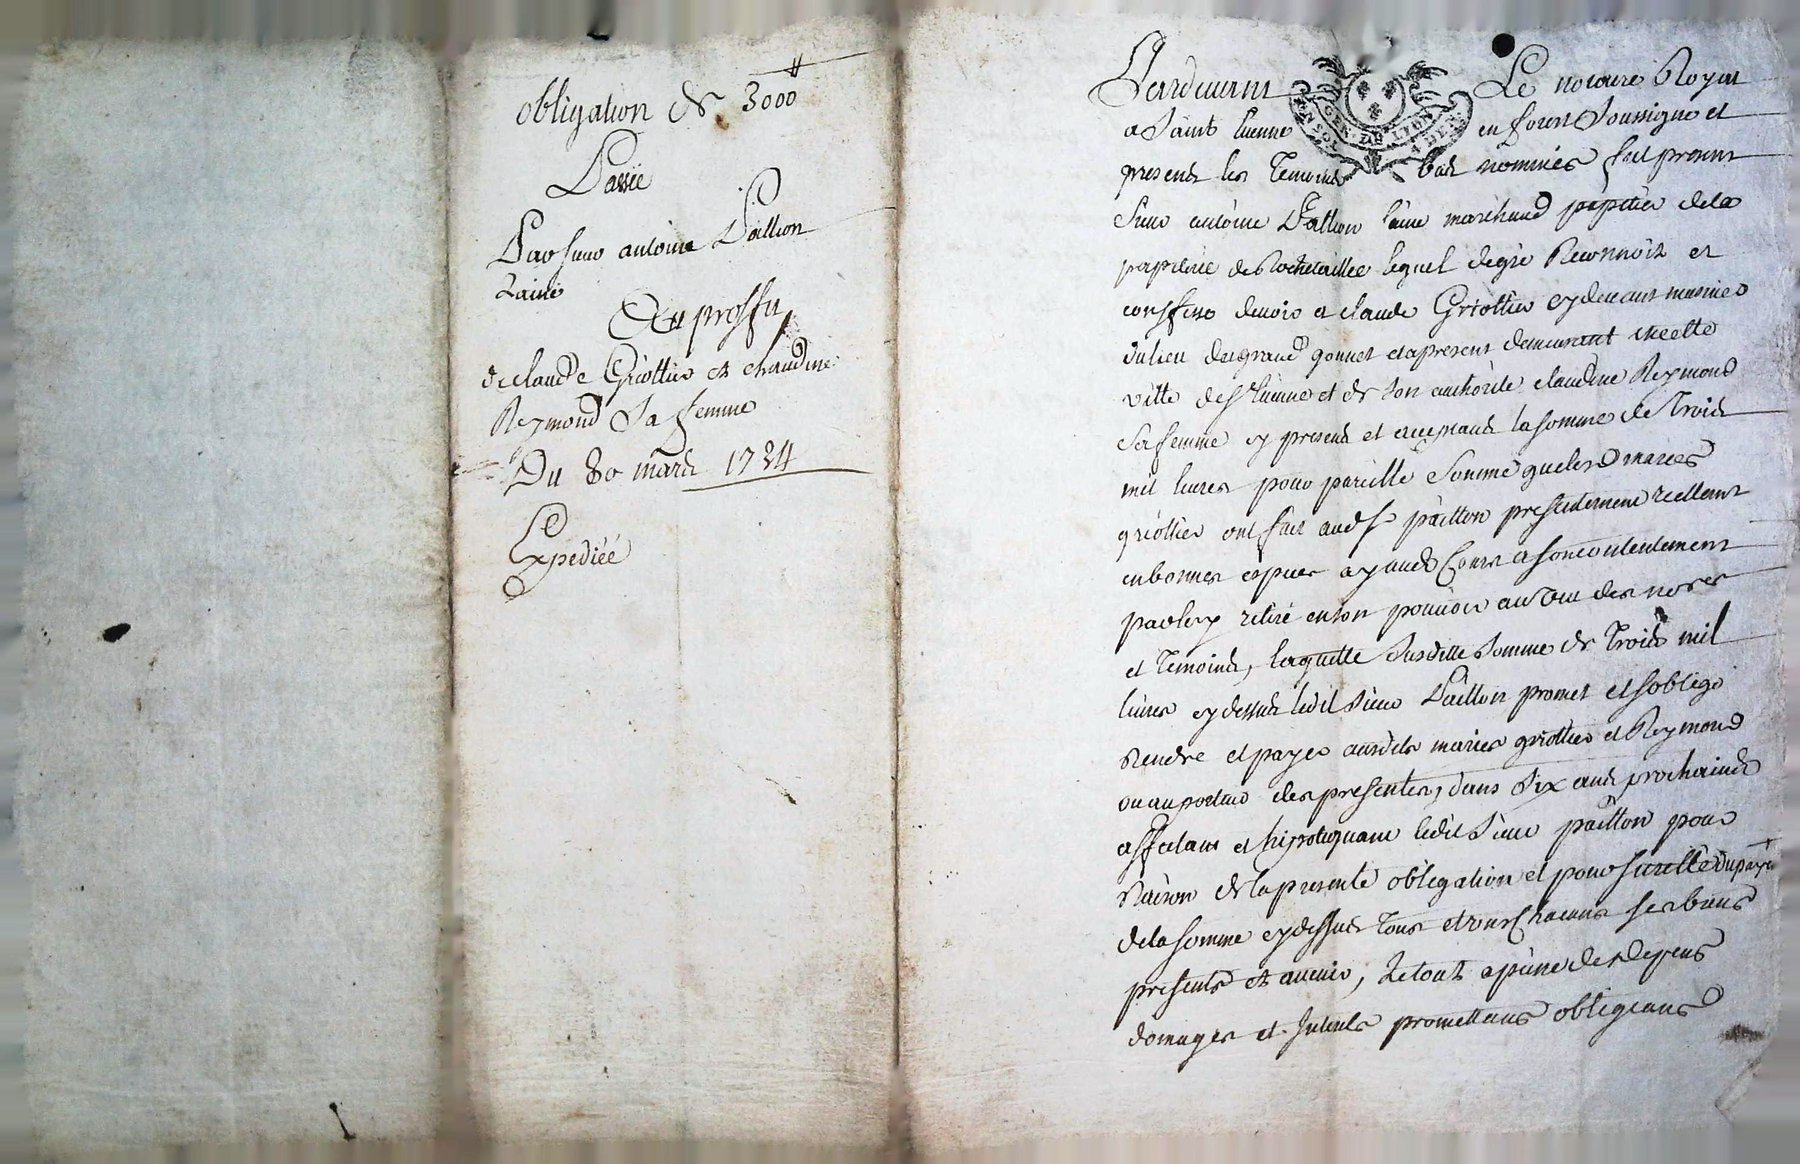 obligation de 3000 ₶
Passée
Par sieur antoine Paillion
Lainé
Au proffit
de claude Griottier et claudine
Reymond Sa femme
Du 30 mars 1784
Expediéé
Pardevant Le notaire Royal
a Saint Etienne en forest Soussigne et
presents les Temoins bas nommés fut present
Sieur antoine Paillion laine marchand papetier de la
papeterie de Rochetaillée lequel de gré Reconnoit et
confesse devoir a claude Griottier cy devant musnier
du lieu du grand gonnet et a present demeurant en cette
ville de St Etienne et de son authorité claudine Reymond
Sa femme cy presents et acceptants la somme de Trois
mil livres pour pareille Somme que lesd mariés
griottier ont fait aud Sr paillon presentement reellement
en bonnes especes ayants Cours a son contentement
par luy retiré en son pouvoir au vu des nores
et Temoins, laquelle Susditte Somme de Trois mil
livres cy dessus ledit Sieur Paillon promet et soblige
Rendre et payer ausdits mariés griottier et Reymond
ou au porteur des presentes, dans Six ans prochains
affectant et hipotequant ledit Sieur paillon pour
Raison de la presente obligation et pour sureté du paye
de la somme cy dessus Tous et uns Chacuns ses biens
presents et avenir, Le tout a peine de depens
domages et Interets promettans obligeans
GEN. DE LYON